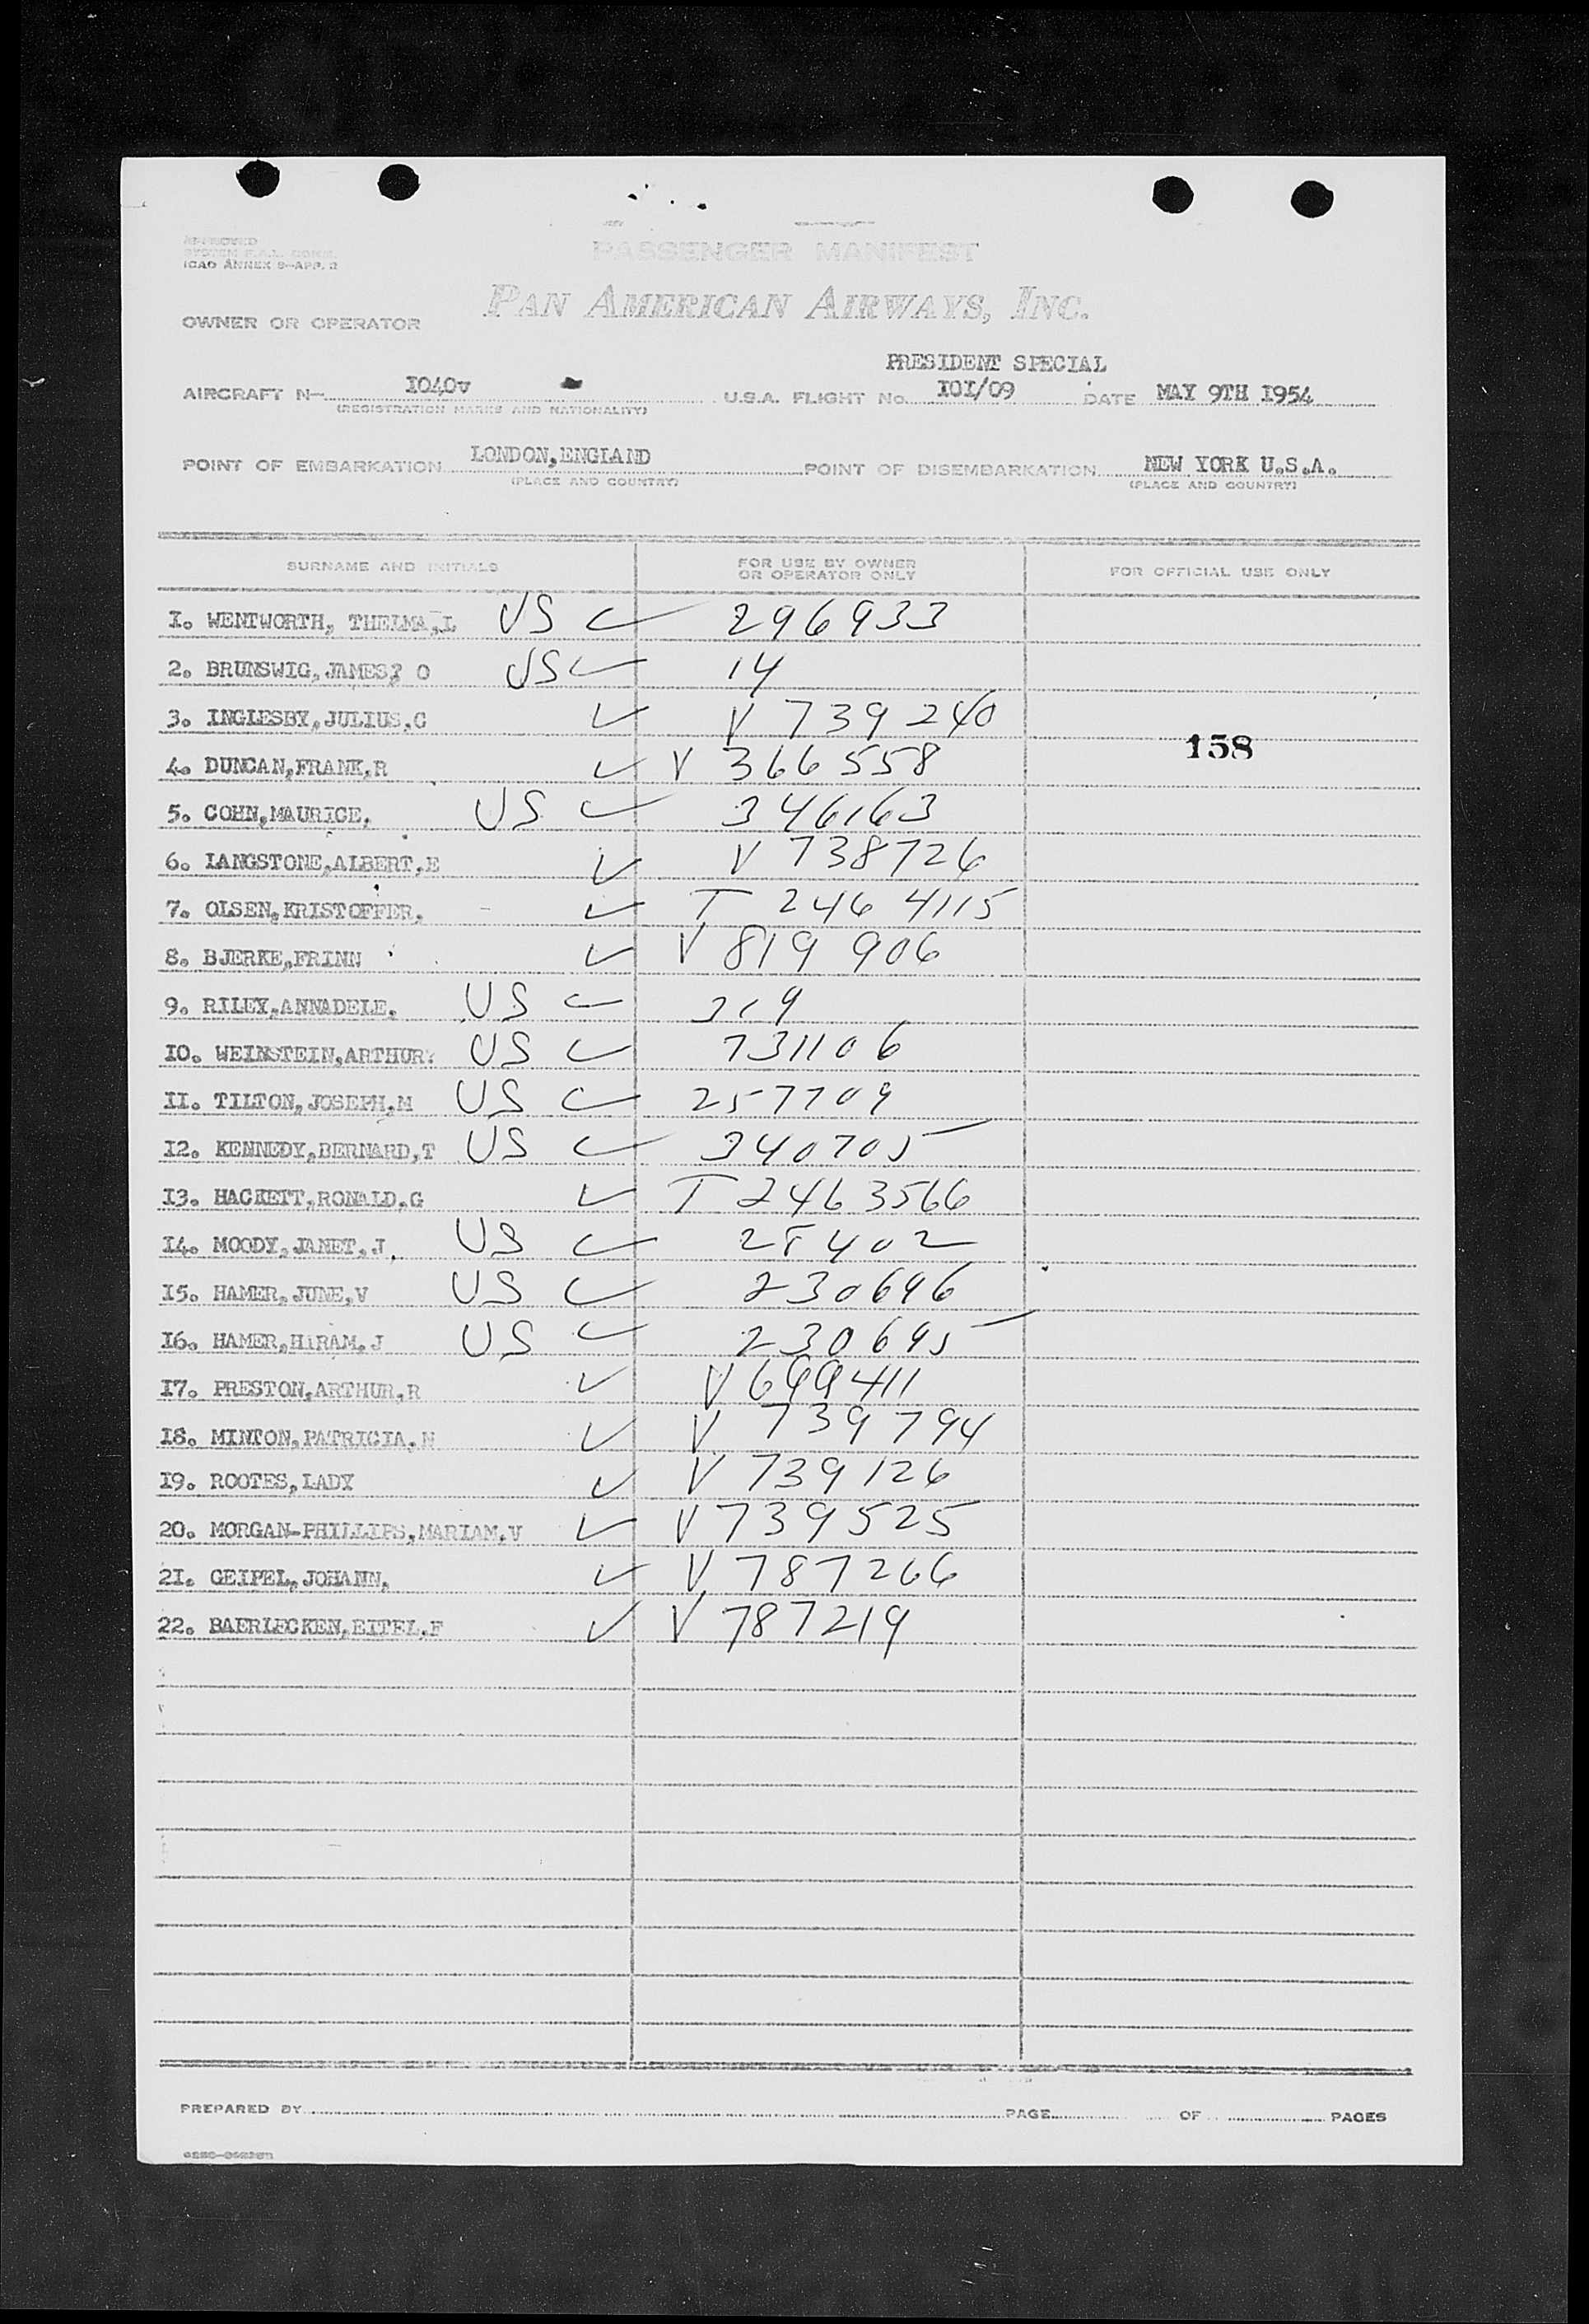 APPROVED
SYSTEM F.A.L. COMM.
ICAO ANNEX 9-APP. 2
PASSENGER MANIFEST
PAN AMERICAN AIRWAYS, INC.
OWNER OR OPERATOR
PRESIDENT SPECIAL
AIRCRAFT N- I040v U.S.A. FLIGHT No. I0I/09 DATE MAY 9TH I954
(REGISTRATION MARKS AND NATIONALITY)
POINT OF EMBARKATION LONDON,ENGLAND POINT OF DISEMBARKATION NEW YORK U.S.A.
(PLACE AND COUNTRY) (PLACE AND COUNTRY)
SURNAME AND INITIALS FOR USE BY OWNER OR OPERATOR ONLY FOR OFFICIAL USE ONLY
I. WENTWORTH, THELMA,L US ✓ 296933
2. BRUNSWIG,JAMES? O US ✓ 14
3. INGLESBY,JULIUS,C ✓ V 739240
158
4. DUNCAN,FRANK,R ✓ V 366558
5. COHN,MAURICE. US ✓ 346163
6. LANGSTONE,ALBERT,E ✓ V 738726
7. OLSEN,KRISTOFFER. ✓ T 246 4115
8. BJERKE,FRINN ✓ V 819 906
9. RILEY,ANNADELE. US ✓ 319
I0. WEINSTEIN,ARTHUR? US ✓ 731106
II. TILTON,JOSEPH,M US ✓ 257709
I2. KENNEDY,BERNARD,T US ✓ 340705
I3. HACKETT,RONALD,G ✓ T 2463566
I4. MOODY,JANET,J. US ✓ 25402
I5. HAMER,JUNE,V US ✓ 230696
I6. HAMER,HIRAM,J US ✓ 230695
I7. PRESTON,ARTHUR,R ✓ V 699411
I8. MINTON,PATRICIA,N ✓ V 739794
I9. ROOTES,LADY ✓ V 739126
20. MORGAN-PHILLIPS,MARIAM,V ✓ V 739525
2I. GEIPEL,JOHANN, ✓ V 787266
22. BAERLECKEN,EITEL,F ✓ V 787219
PREPARED BY PAGE OF PAGES